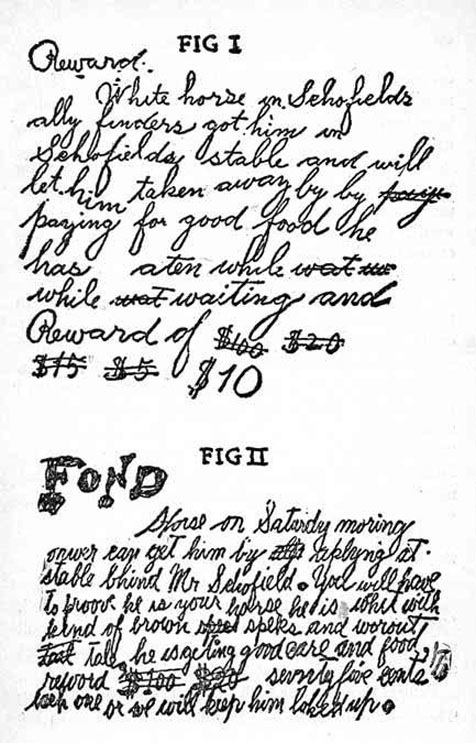 FIG I
Reward.
White horse in Schofields
ally finders got him in
Schofields stable and will
let him taken away by by payn
paying for good food he
has aten while wat we
while wat waiting and
Reward of $100 $20
$15 $5 $10
FIG II
FOND
Horse on Saturdy moring
onwer can get him by applying at
stable bhind Mr Schofield. You will have
to proove he is your horse he is whit with
kind of brown speks and worout
tail, he is geting good care and food,
reword $100 $20 sevnty five cents to
each one or we will keep him locked up.